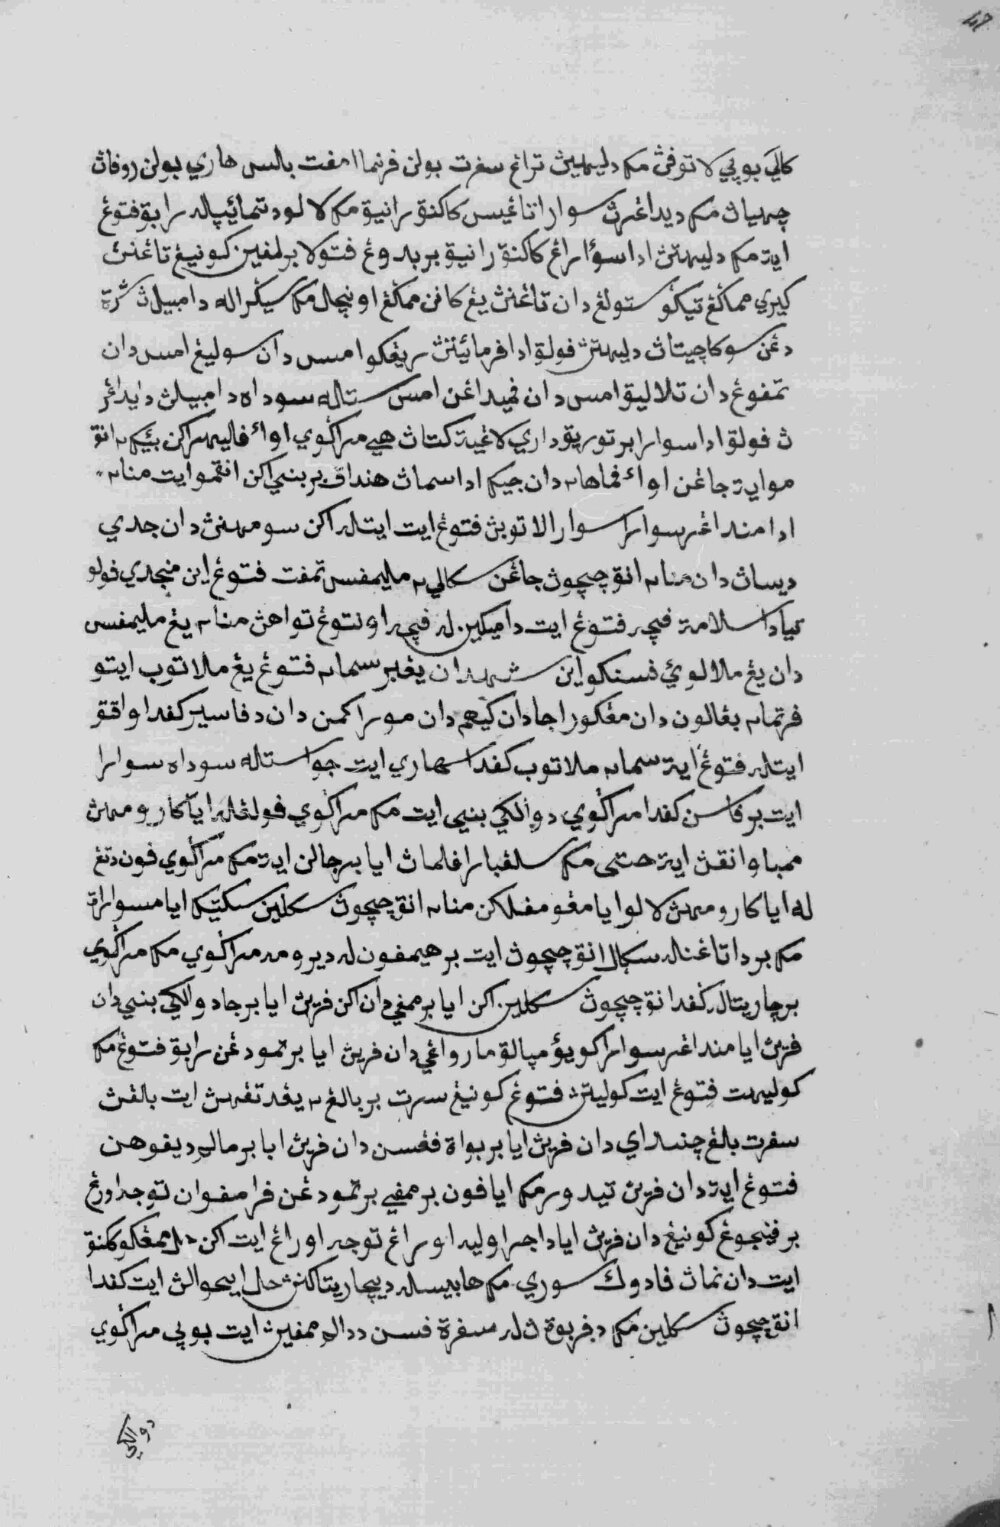 كالي بوپي لا توفڠ مک دليهتڽ تراڠ سفرت بولن فرنما امفت بالس هاري بولن روفاڽ
چهياڽ مک ديداڠرڽ سوار اناڠيس كاكنق رانيق مک لالو دتمائيپاله رابق فتوڠ
ايت مک دليهتڽ اد اسؤارڠ كاكنق رانيق بربدوڠ فتوكلا برلمفين كونيڠ تاڠنڽ
كيري مماڬڠ تيڬو ستولڠ دان تاڠنڽ يڠ كانن ممڬڠ اونچل مک سيڬراله دامبيلڽ شرة
دڠن سوكاچيتاڽ دليهتڽ فولق اد فرمائينڽ ريڠكو امس دان سوليڠ امس دان
تمفوڠ دان تلاليق امس دان فيدا امس ستله سوداه دامبيلڽ دايداڠر
ڽ فولق اد اسوارا برتورق داري لاڠيت كتاڽ هي مراڬوي اواء فاليهراكن بئيك٢ انق
موايت جاڠن اواء فماهار دان جيک اد اسماڽ هنداق بربنيكن انقمو ايت منا٢
اد امنداڠر سوارا سوارا لا توبڽ فتوڠ ايت ايتله اكن سومهنڽ دان جدي
ديساڽ دان منا٢ انق چوچوڽ جاڠن سكالي٢ مليمفس تمفت فتوڠ اين منجدي فولو
تياد سلامت فيچر فتوڠ ايت دامكين له فيچر اونتوڠ تواهڽ منا٢ يڠ مليمفس
دان يڠ ملالوي فسنكو اين شهدان يڠبر سمام فتوڠ يڠ ملاتوب ايتو
فرتمام بڠالون دان مڠكوراجا دان كيهم دان موسراكمن دان دفاسير كفد اواقتو
ايتله فتوڠ ايت سمام ملاتوب كفد اسهاري ايت جوا ستله سوداه سوارا
ايت برفاسن كفد مراڬوي دوالكي بنيي ايت مک مراڬوي فولڠله ايا كارومهڽ
ممباوا انقڽ ايت حتى مک سلڠبارا ڤلمان ايا برجالن ايت مک مراڬوي فون دتڠ
له ايا كارومهڽ لالو ايا مڠومفلكن منا٢ انق چوچوڽ سكلين سكتيک ايا مسوارت
مک برداتاڠنله سكل انق چوچوڽ ايت برهيمفون له ديرومه مراڬوي مک مراڬوي
برچاريتاله كفد انق چوچوڽ سكلين اكن ايا برممفي دان اكن فريڽ ايا برجاد والكي بنيي دان
فريڽ ايا منداڠر سوارا كويؤ ممپالق ماراوڠي دان فريڽ ايا برتمو دڠن رابق فتوڠ مک
كوليهت فتوڠ ايت كوليتڽ فتوڠ كونيڠ سرت بربالڠ٢ يڤد تڤهڽ ايت بالڠڽ
سفرت بالڠ چنداي دان فريڽ ايا بربواة فڠسن دان فريڽ ايا برماله ديفوهن
فتوڠ ايت دان فريڽ تيدور مک ايا فون برممفي برتمو دڠن فرامفوان توجه اورڠ
برفنجوڠ كونيڠ دان فريڽ ايا داجراوليه اوراڠ توجه اوراڠ ايت اكن هل ممڠكو كاكنق
ايت دان نماڽ فادوک سوري مک هابيسله ديچاريتاكنڽ حال ايحوالڽ ايت كفدا
انق چوچوڽ سكلين مک دفربوة ڽ له سفرة فسن ددالم ممفين ايت بوپي مراڬوي
دوالكي